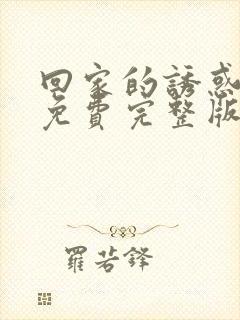 回家的誘惑
免費完整版
羅若鋒